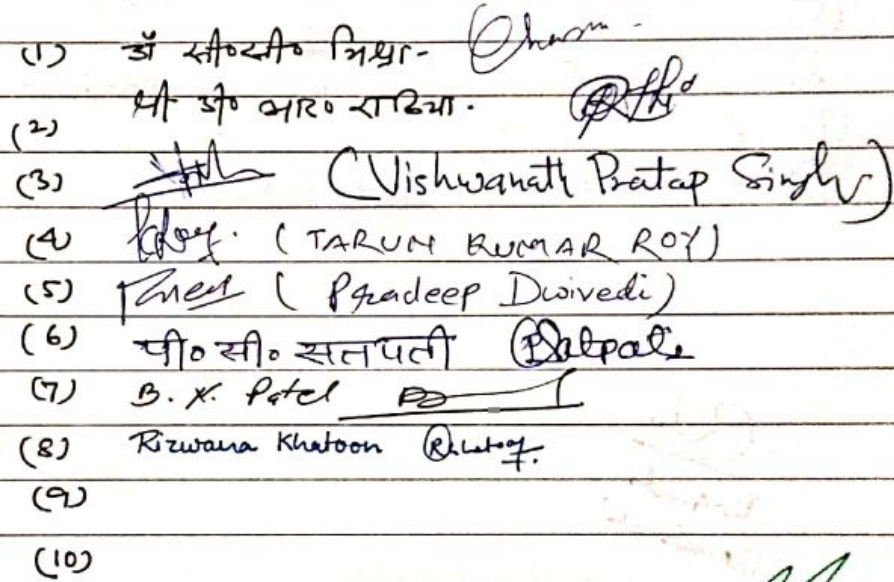 (1) डॉ सी०सी० मिश्रा-
(2) श्री डी० आर० राठिया.
(3) (Vishwanath Pratap Singh)
(4) (TARUN KUMAR ROY)
(5) (Pradeep Dwivedi)
(6) पी० सी० सतपती Satpati
(7) B. K. Patel
(8) Rizwana Khatoon
(9)
(10)